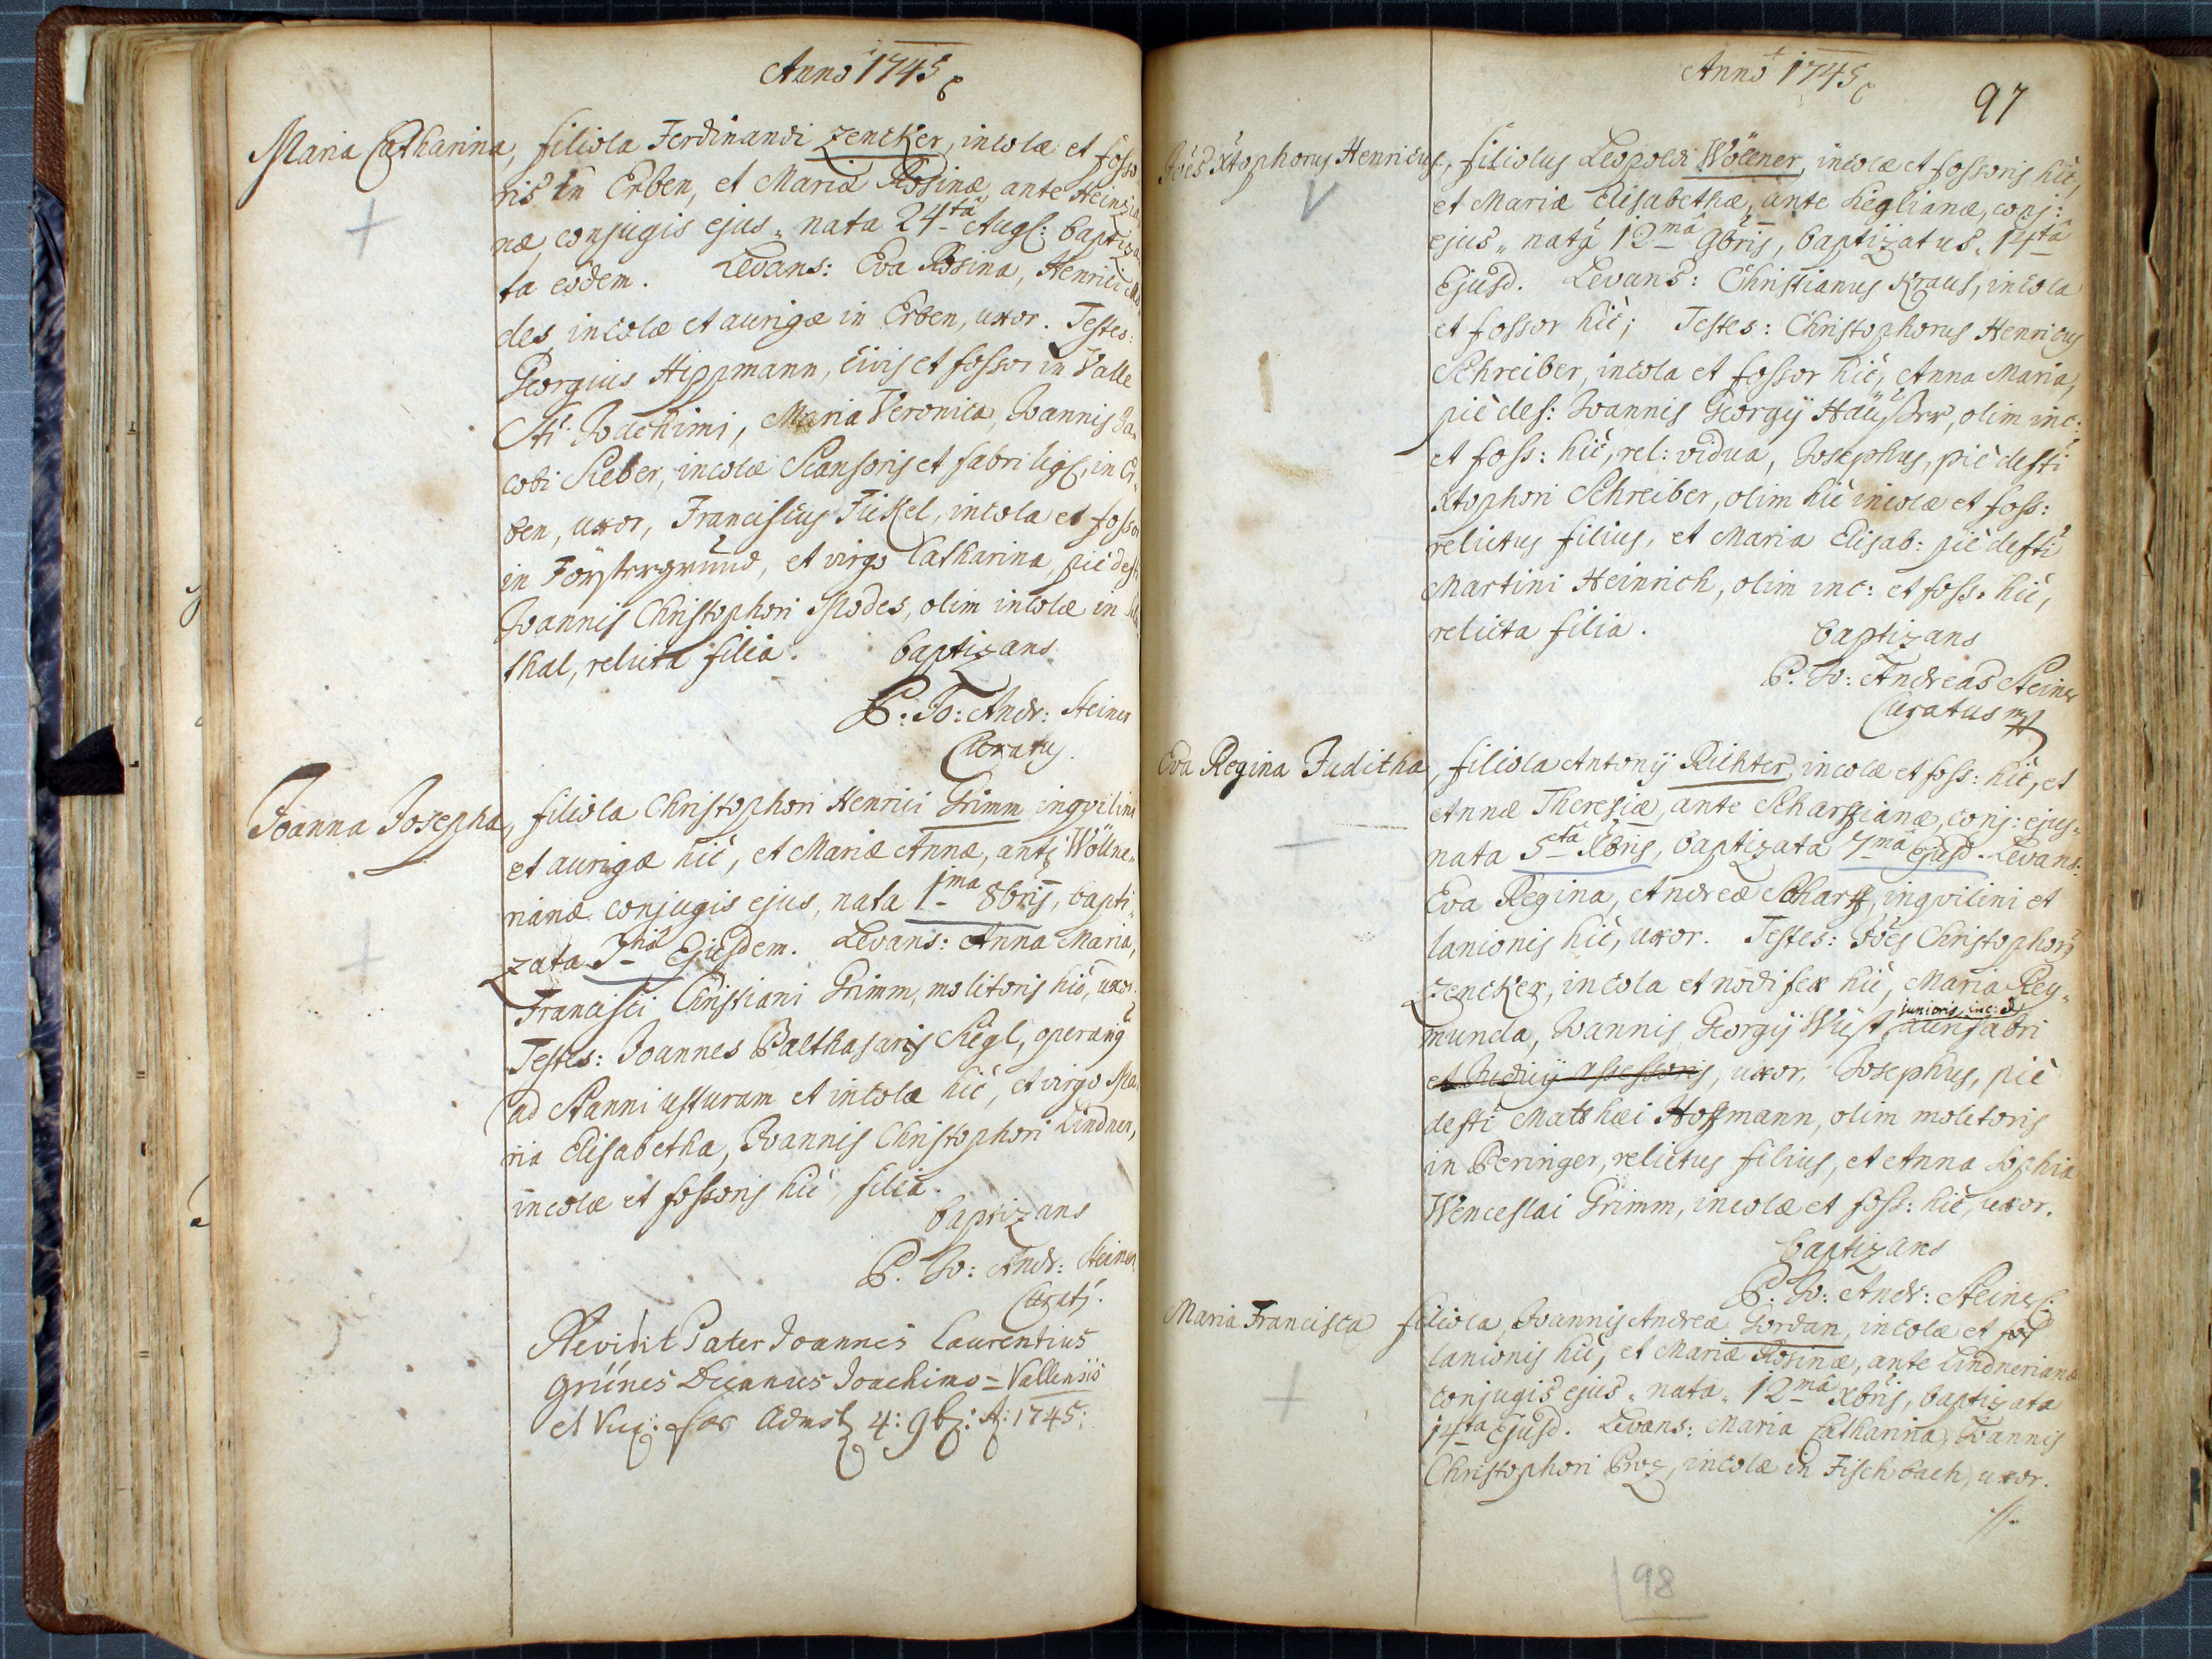 Anno 1745
Maria Catharina, filiola Ferdinandi Zencker, incolæ et fosso
ris in Erben, et Mariæ Rosinæ, ante Heinzia
næ conjugis ejus, nata 24tâ Augs: baptiza
ta eôdem. Levans: Eva Rosina, Henrici Mo
des incolæ et aurigæ in Erben, uxor. Testes:
Georgius Hippmann, civis et fossor in Valle
Sti Joachimi, Maria Veronica, Joannis Ja
cobi Sieber, incolæ Scansoris et fabri lig: in Er
ben, uxor, Franciscus Fickel, incola et fossor
in Förstergrund, et virgo Catharina, piè defti
Joannis Christophori Modes, olim incolæ in
thal, relicta filia. baptizans
P: Jo: Andr: Steiner
Curatus.
Joanna Josepha, filiola Christophori Henrici Grimm inqvilini
et aurigæ hic, et Mariæ Annæ, ante Wöllne
rianæ conjugis ejus, nata 1ma 8bris, bapti
zata 3tiâ Ejusdem. Levans: Anna Maria,
Francisci Christiani Grimm, molitoris hic, uxor.
Testes: Joannes Balthasaris Siegl, operarius
ad Stanni usturam et incola hic, et virgo Ma
ria Elisabetha, Joannis Christophori Lindner,
incolæ et fossoris hic, filia.
baptizans
P. Jo: Andr: Steiner
Curats.
Revidit Pater Joannes Laurentius
Grünes Decanus Joachimo=Vallensis
et Vic: for 4: 9b: A: 1745:
Anno 1745
97
Joës Xtophorus Henricus, filiolus Leopoldi Wöllner, incolæ et fossoris hic,
et Mariæ Elisabethæ, ante Sieglianæ, conj:
ejus, natus 12mâ 9bris, baptizatus 14tâ
Ejusd. Levans: Christianus Kraus, incola
et fossor hic; Testes: Christophorus Henricus
Schreiber, incola et fossor hic, Anna Maria,
piè def: Joannis Georgij Häusler, olim inc:
et foss: hic, rel: vidua, Josephus, piè defti
Xtophori Schreiber, olim hic incolæ et foss:
relictus filius, et Maria Elisab: piè defti
Martini Heinrich, olim inc: et foss: hic,
relicta filia. baptizans
P. Jo: Andreas Steiner
Curatus mp
Eva Regina Juditha, filiola Antonij Richter, incolæ et foss: hic, et
Annæ Theresiæ, ante Scharffianæ, conj: ejus,
nata 5tâ Xbris, baptizata 7mâ Ejusd. Levans:
Eva Regina, Andreæ Scharff, inqvilini et
lanionis hic, uxor. Testes: Joës Christophorus
Zencker, incola et nodifex hic, Maria Rey
junioris, inc: et
munda, Joannis Georgij Wüst, aurifabri
et Judicij assessoris, uxor, Josephus, piè
defti Matthæi Hoffmann, olim molitoris
in Peringer, relictus filius, et Anna Sophia
Wenceslai Grimm, incolæ et foss: hic, uxor.
baptizans
P. Jo: Andr: Steiner C:
Maria Francisca filiola Joannis Andreæ Jordan, incolæ et
lanionis hic, et Mariæ Rosinæ, ante Lindnerianæ
conjugis ejus, nata 12mâ Xbris, baptizata
14ta Ejusd. Levans: Maria Catharina, Joannis
Christophori Proz, incolæ in Fischbach, uxor.
98